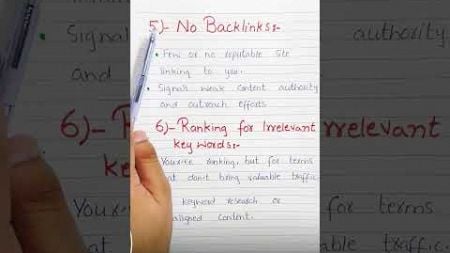 5)- No Backlinks:-
• Few or no reputable site
linking to you.
• Signals weak content authority
and outreach efforts
6)- Ranking for Irrelevant
key words:-
You're ranking, but for terms
at don't bring valuable traffic
keyword research or
aligned content.
Signal
and
authority
irrelevant
Youre
for terms
able traffic.